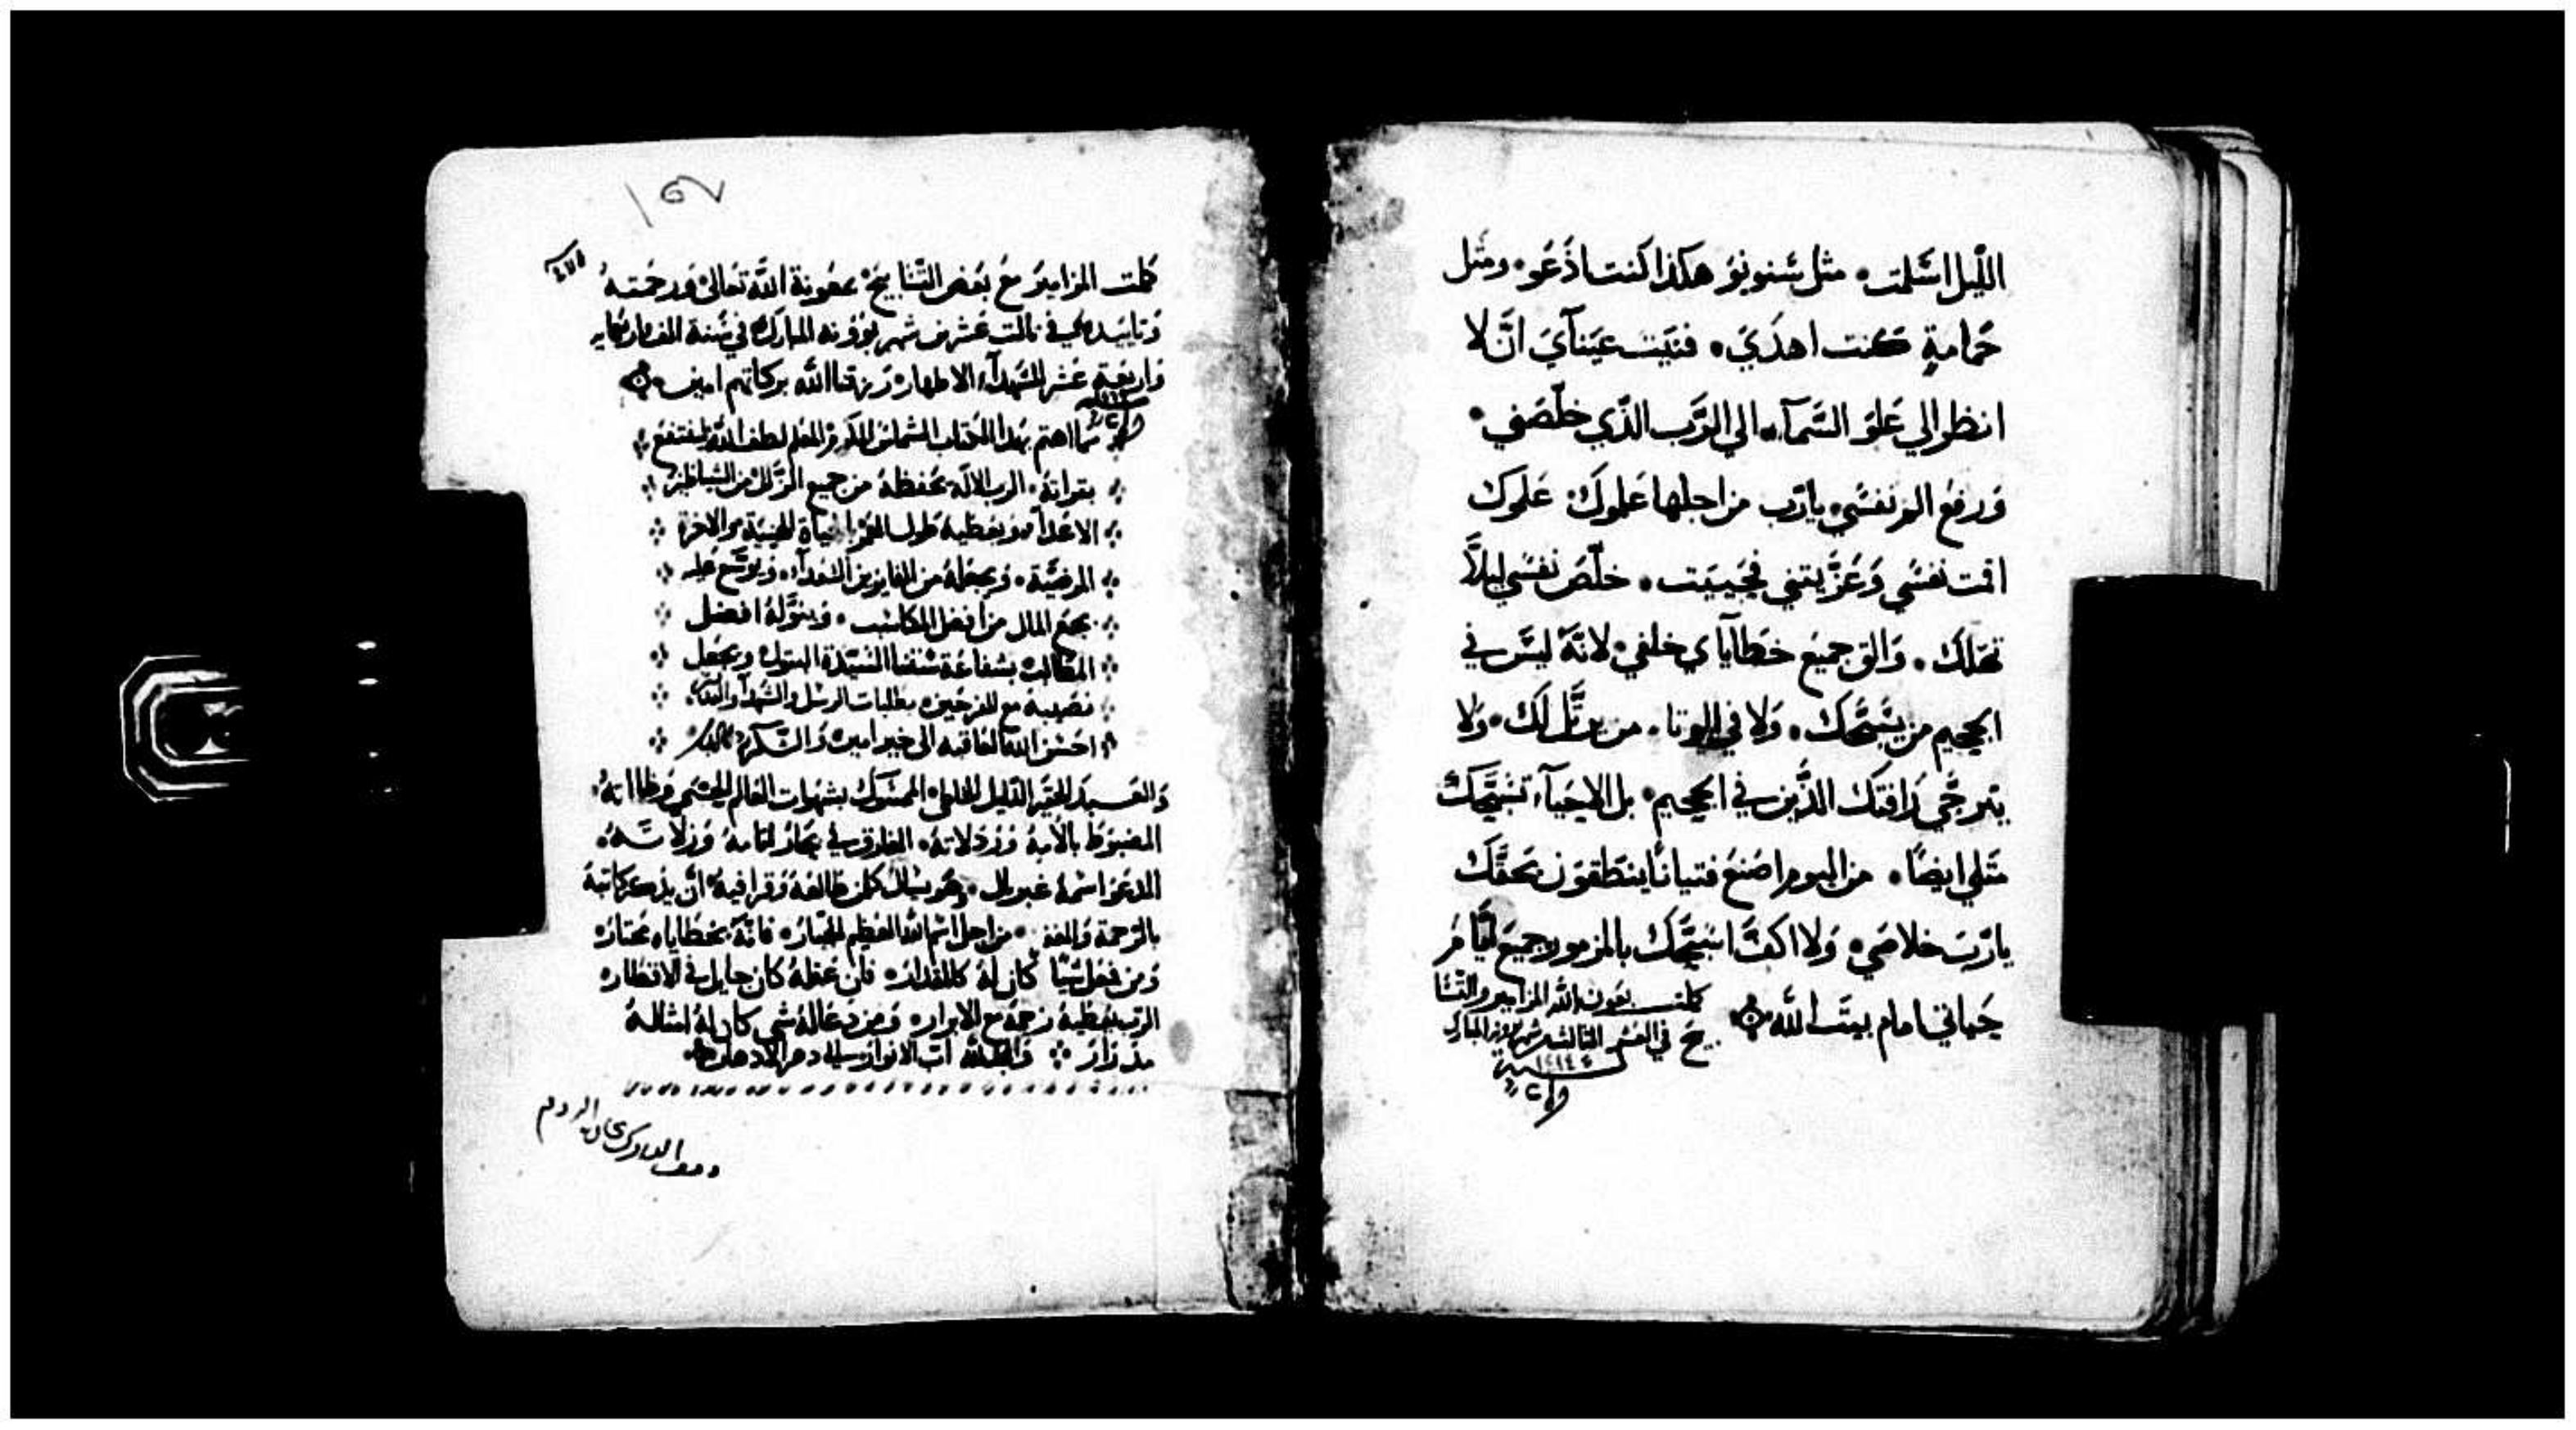 الليل اسلمت. مثل سنونو هكذا كنت ادعو. ومثل
حمامةٍ كنت اهدي. فنيت عيناي ان لا
انظر الي علو السمآء. الي الرب الذي خلّصني.
ورفع الم نفسي. يا رب من اجلها علموك. علموك
اقمت نفسي وعزيتني فحييت. خلص نفسي ليلاّ
تهلك. والق جميع خطاياي خلفي. لانه ليس في
الجحيم من يسبّحك. ولا في الموتا. من يرتّل لك. ولا
يترجّي رافتك الذين في الجحيم. بل الاحيآء تسبّحك
مثلي ايضًا. من اليوم اصنع فتيانًا ينطقون بحقّك
يا رب خلاصي. ولا اكفّ اسبّحك بالمزمور جميع ايام
حياتي امام بيت الله
كملت بعون الله المزامير والتسا
بيح في العشر الثالث شهر بوونه المبارك
سنة ١٤١٤
١٥٧
كملت المزامير مع بعض التسابيح بمعونة الله تعالى ورحمته
وتاييده في ثالث عشر من شهر بوونه المبارك في سنة الف واربعمايه
واربعة عشر للشهدآء الاطهار رزقنا الله بركاتهم امين
مما اهتم بهذا الكتاب الشماس المكرم المعلم لطف الله لينتفع
بقراته. الرب الاله يحفظه من جميع الزلل من الشياطين
الاعدآء. ويعطيه طول العمر الحياة الهنية والاخرة
المرضية. ويجعله من الفايزين السعدآء. ويوسّع عليه
بجمع المال من افضل المكاسب. وينوّله افضل
المطالب بشفاعة ستنا السيدة البتول ويجعل
نصيبه مع الفرحين بطلبات الرسل والشهدآ
احسن الله العاقبه الى خير امين. والشكر
والعبد الحقير الذليل الخاطي الممسوك بشهوات العالم الجسمي وخطااته
المضبوط بالامه وزدلاته. الغارق في بحار اثامه وزلاته.
المدعو اسمه غبريال. وهو يسال كلمن طالعه وقرا فيه ان يذكر كاتبه
بالرحمة والمغفرة. من اجل اسم الله العظيم الجبار. فانه بخطاياه محتار
ومن فعل شيًا كان له كالمقدار. فان عقله كان جايل في الاقطار
الرب يعطيه رحمة مع الابرار. ومن دعا له بشي كان له امثاله
مدرار